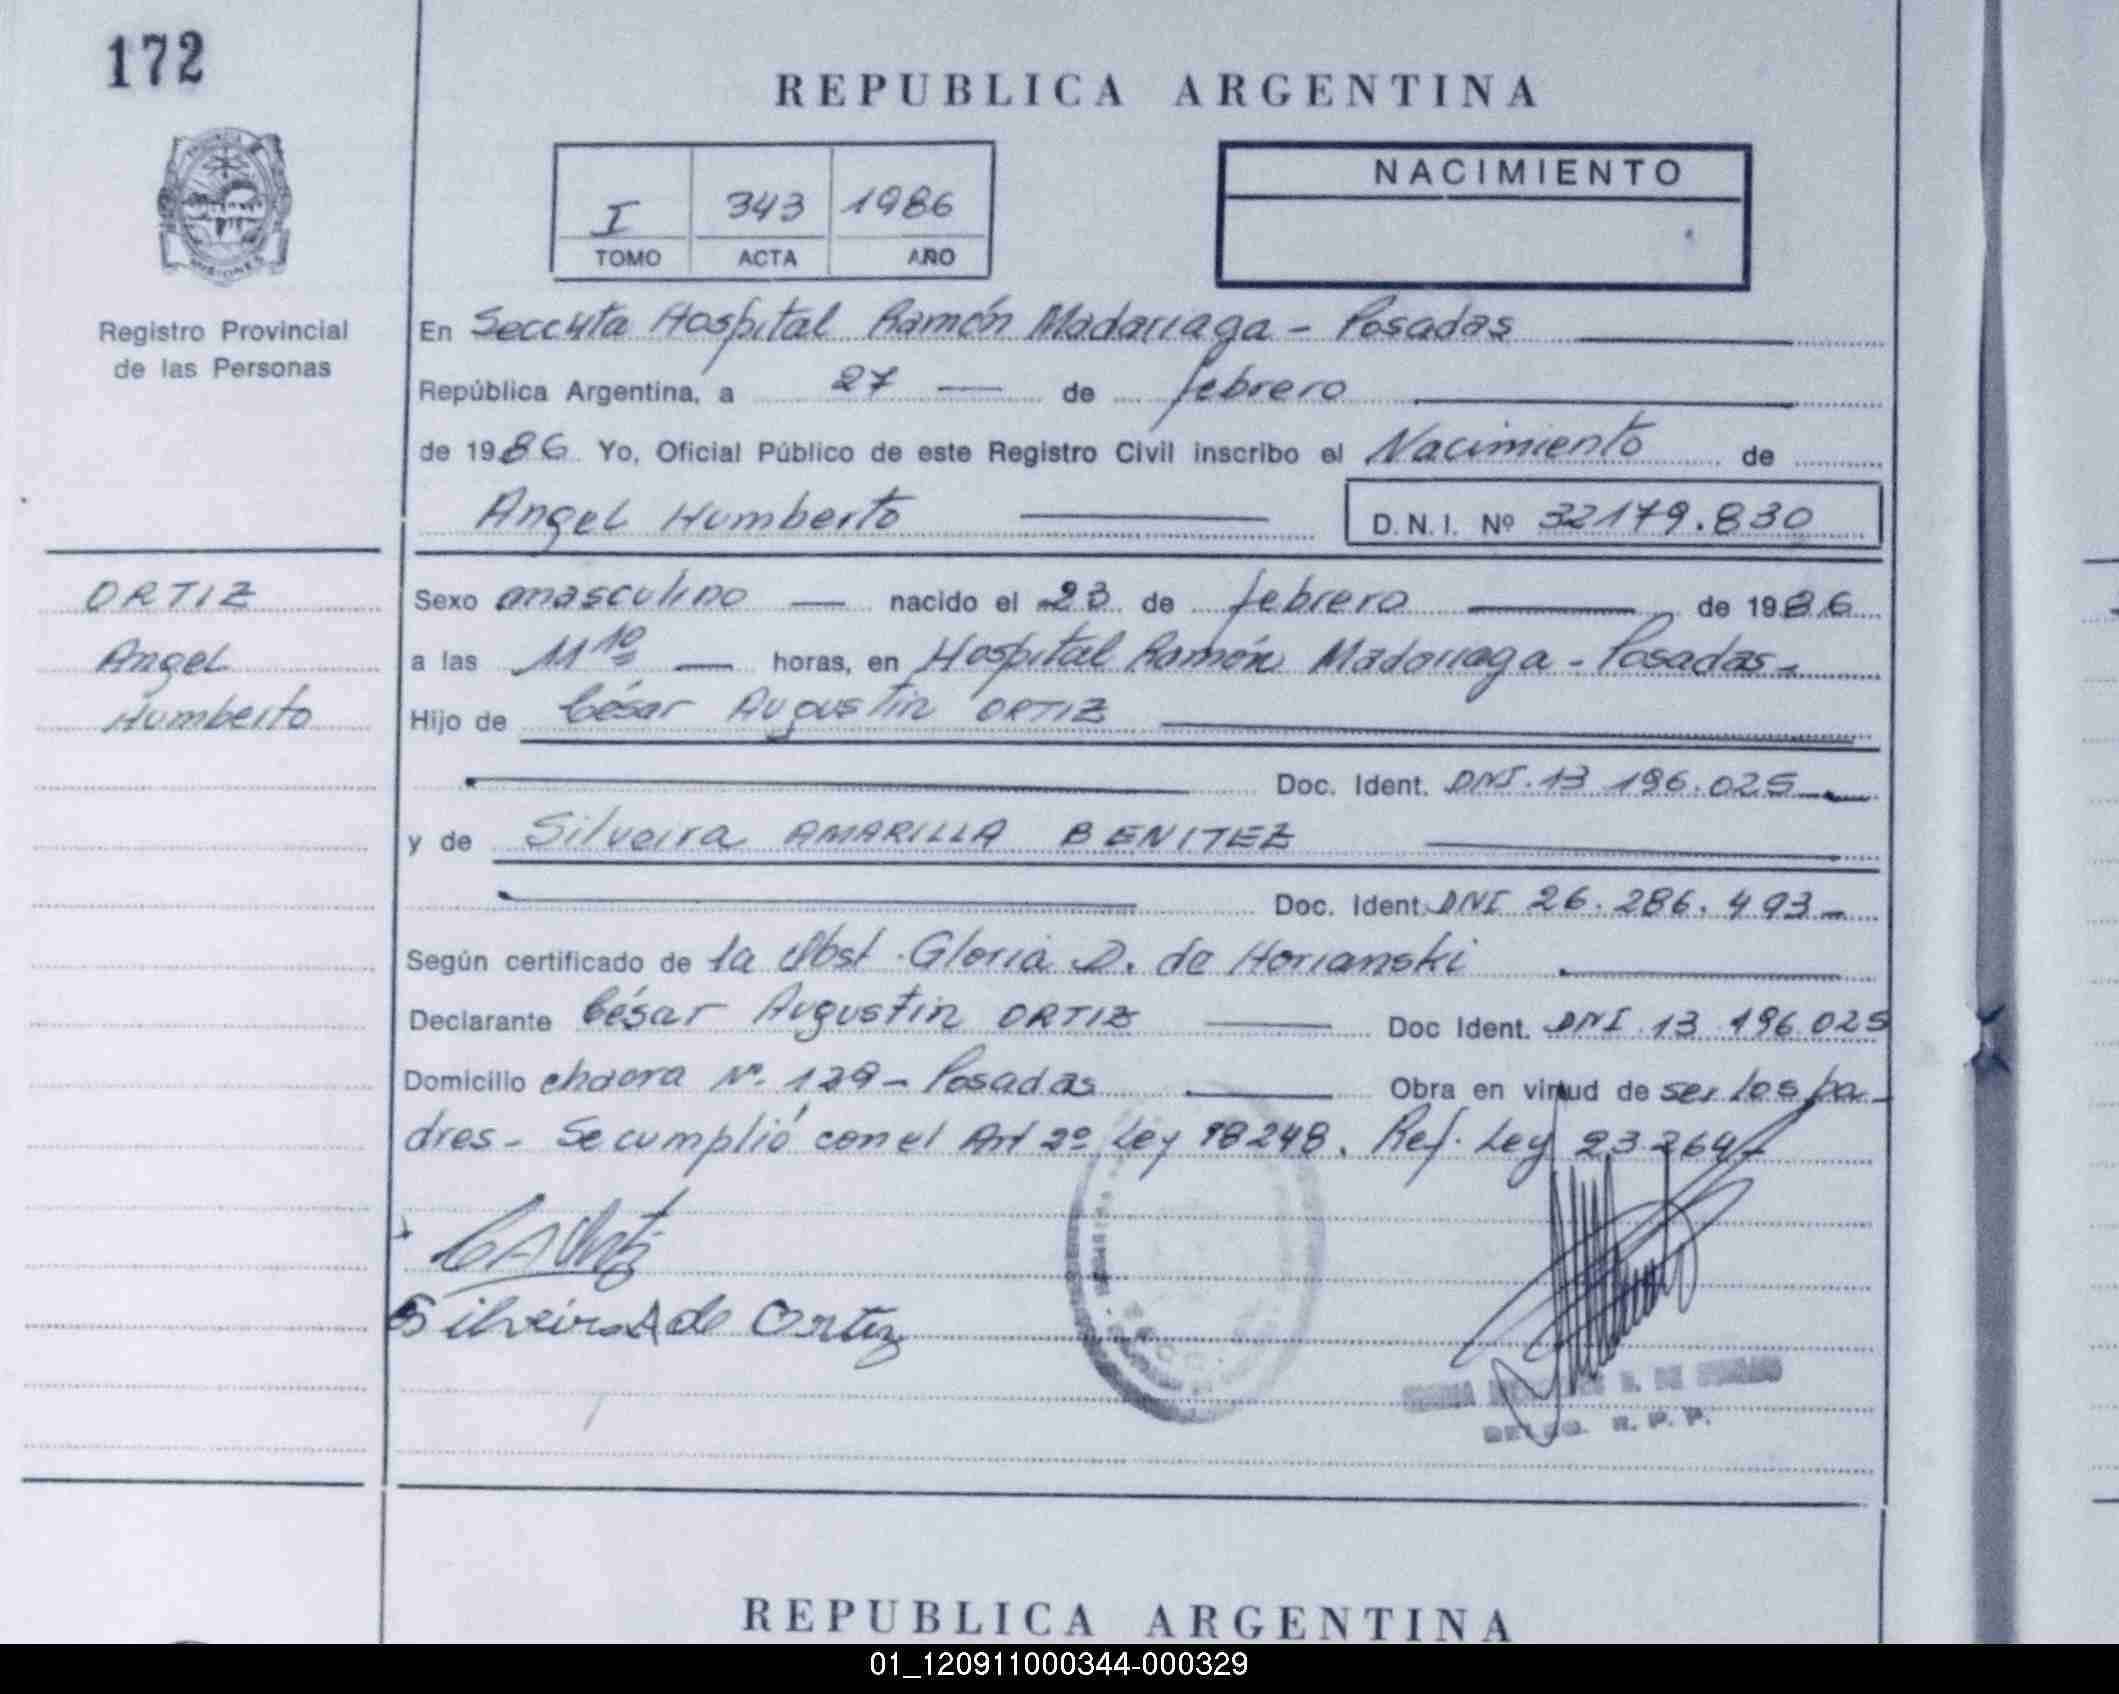 172
REPUBLICA ARGENTINA
NACIMIENTO
I 343 1986
TOMO ACTA AÑO
MISIONES
Registro Provincial
de las Personas
En Secc 4ta Hospital Ramón Madariaga - Posadas
República Argentina, a 27 de febrero
de 1986 Yo, Oficial Público de este Registro Civil inscribo el Nacimiento de
Angel Humberto D.N.I. Nº 32179.830
ORTIZ
Angel
Humberto
Sexo masculino nacido el 23 de febrero de 1986
a las 11 10 horas, en Hospital Ramón Madariaga - Posadas -
Hijo de César Augustin ORTIZ
Doc. Ident. DNI. 13 196.025
y de Silveira AMARILLA BENITEZ
Doc. Ident. DNI 26.286.493 -
Según certificado de la Obst. Gloria D. de Horianski
Declarante César Augustin ORTIZ Doc Ident. DNI 13 196 025
Domicilio chacra Nº 129 - Posadas Obra en virtud de ser los pa-
dres - Se cumplió con el Art 2º Ley 18248. Ref. Ley 23264
Silveira A de Ortiz
DE
R. P. P.
REPUBLICA ARGENTINA
01_120911000344-000329